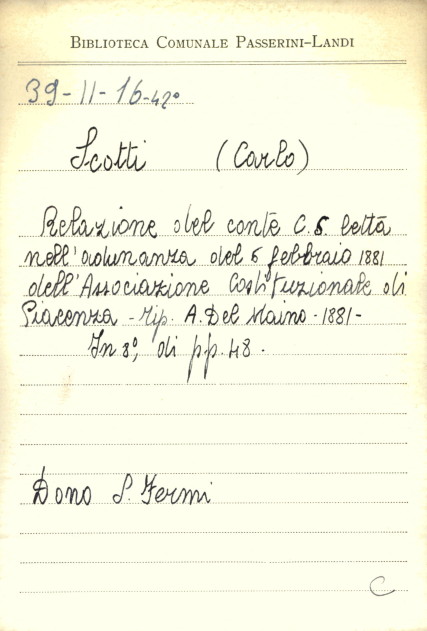 BIBLIOTECA COMUNALE PASSERINI-LANDI
39-II-16-42°
Scotti (Carlo)
Relazione del conte C. S. letta
nell'adunanza del 6 febbraio 1881
dell'Associazione Costituzionale di
Piacenza - Tip. A. Del Maino - 1881 -
In 8°, di pp. 48.
Dono S. Fermi
C